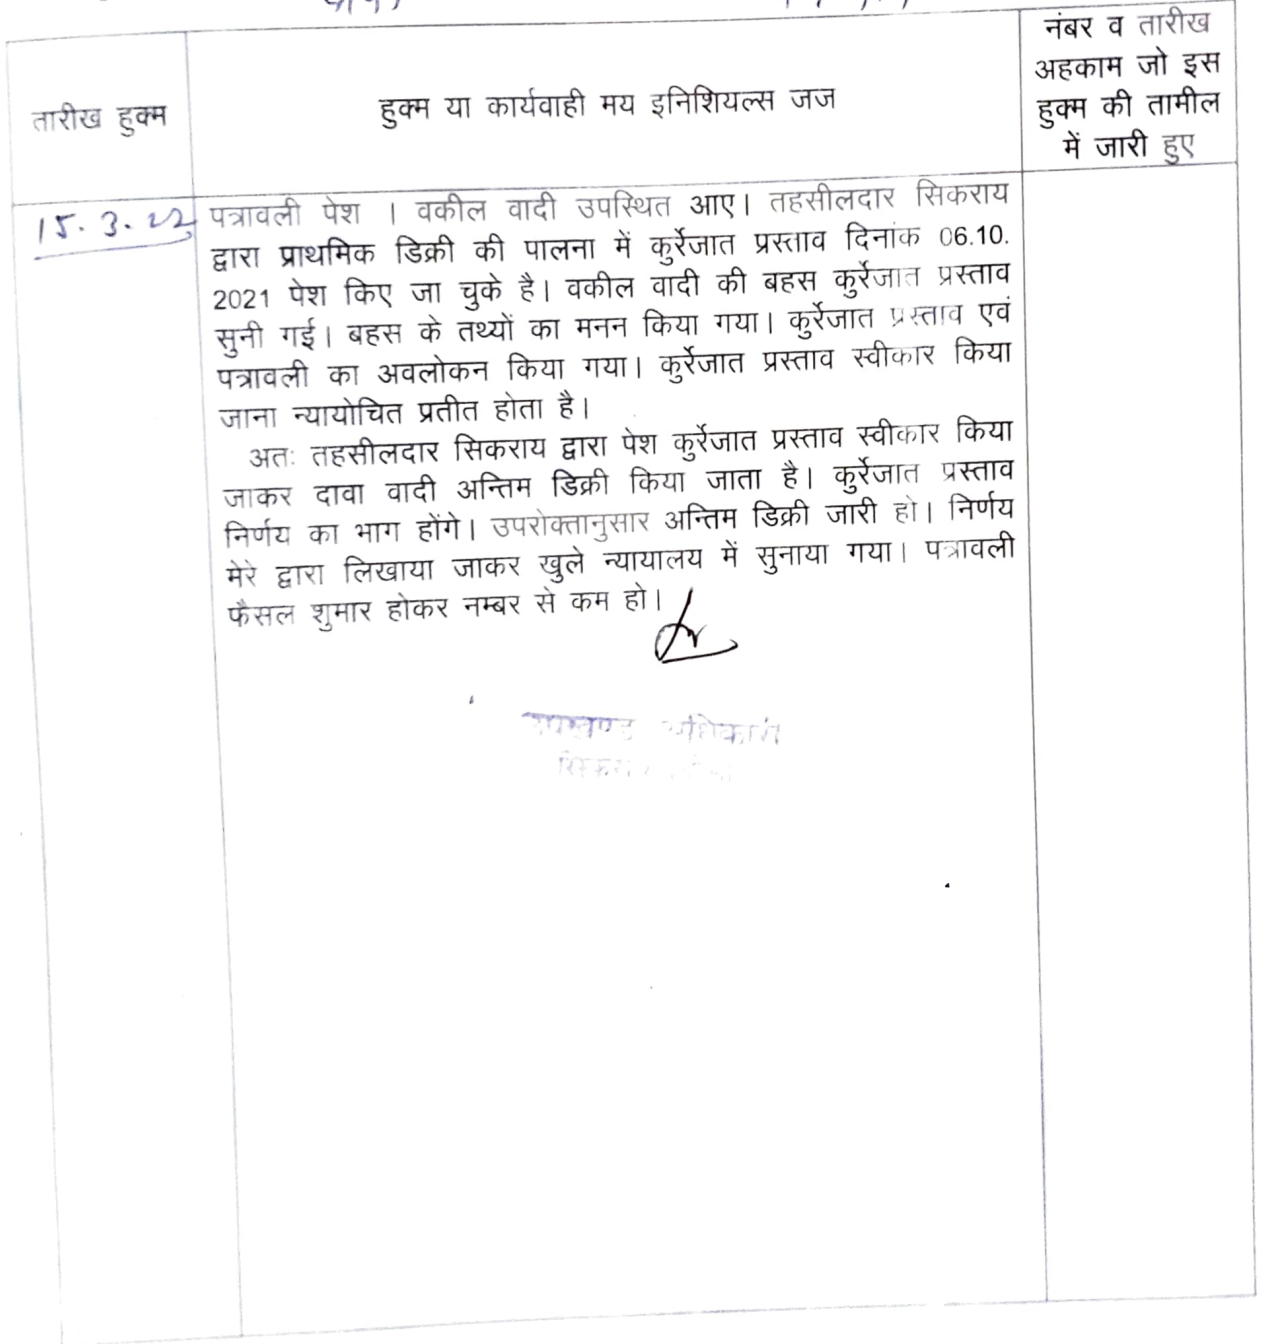 नंबर व तारीख
अहकाम जो इस
हुक्म की तामील
में जारी हुए
तारीख हुक्म
हुक्म या कार्यवाही मय इनिशियल्स जज
15.3.22
पत्रावली पेश । वकील वादी उपस्थित आए। तहसीलदार सिकराय
द्वारा प्राथमिक डिक्री की पालना में कुर्रेजात प्रस्ताव दिनांक 06.10.
2021 पेश किए जा चुके है। वकील वादी की बहस कुर्रेजात प्रस्ताव
सुनी गई। बहस के तथ्यों का मनन किया गया। कुर्रेजात प्रस्ताव एवं
पत्रावली का अवलोकन किया गया। कुर्रेजात प्रस्ताव स्वीकार किया
जाना न्यायोचित प्रतीत होता है।
अतः तहसीलदार सिकराय द्वारा पेश कुर्रेजात प्रस्ताव स्वीकार किया
जाकर दावा वादी अन्तिम डिक्री किया जाता है। कुर्रेजात प्रस्ताव
निर्णय का भाग होंगे। उपरोक्तानुसार अन्तिम डिक्री जारी हो। निर्णय
मेरे द्वारा लिखाया जाकर खुले न्यायालय में सुनाया गया। पत्रावली
फैसल शुमार होकर नम्बर से कम हो।
उपखण्ड अधिकारी